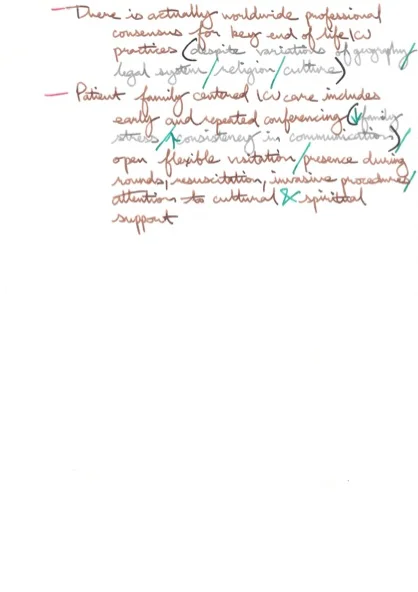 — There is actually worldwide professional
consensus for key end of life ICU
practices (despite variations of geography/
legal system/religion/culture)
— Patient family centered ICU care includes
early and repeated conferencing (↓family
stress/↑consistency in communication)/
open flexible visitation/presence during
rounds, resuscitation, invasive procedures/
attention to cultural & spiritual
support